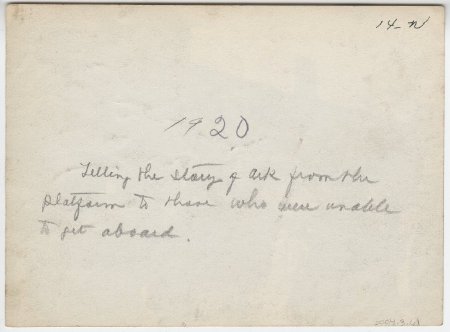 14-N
1920
Telling the story of Ark from the
platform to those who were unable
to get aboard.
2004.3.61